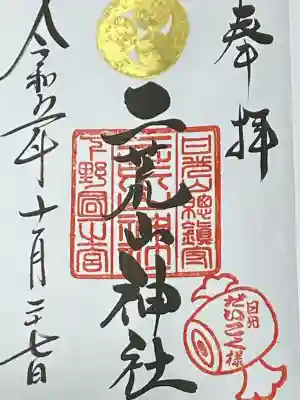 奉拝
日光山總鎮守
二荒山神社
下野國一宮
令和五年十月二十七日
日光
だいこく様